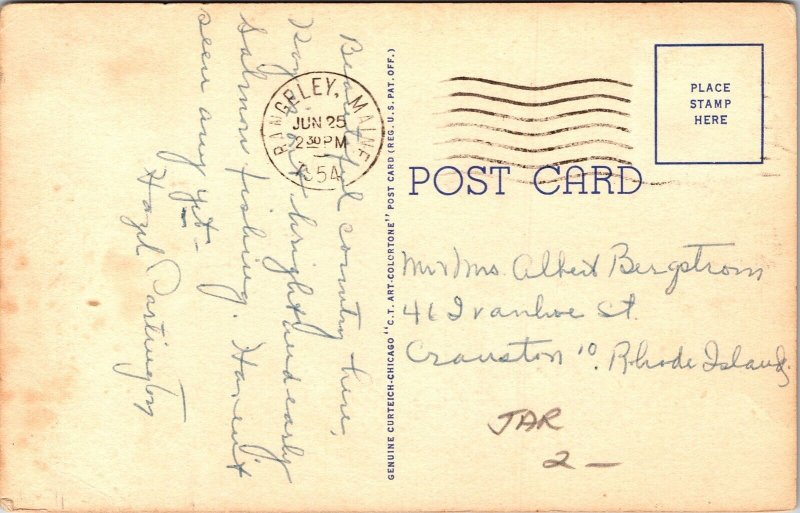 Beautiful country here,
Roy is out bright and early
Salmon fishing. Haven't
seen any yet –
Hazel Partington
RANGELEY, MAINE
JUN 25
2 30 PM
1954
GENUINE CURTEICH-CHICAGO "C.T. ART-COLORTONE" POST CARD (REG. U.S. PAT. OFF.)
PLACE
STAMP
HERE
POST CARD
Mr & Mrs. Albert Bergstrom
41 Ivanhoe St.
Cranston 10. Rhode Island
JAR
2 –